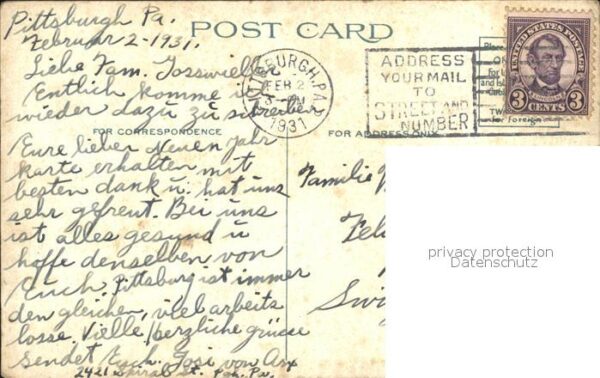 Pittsburgh Pa.
Februar 2-1931.
POST CARD
Liebe Fam.
Entlich komme ich
wieder dazu zu schreiben
FOR CORRESPONDENCE
Eure lieber Neuen Jahr
karte erhalten mit
besten dank u. hat uns
sehr gefreut. Bei uns
ist alles gesund u
hoffe denselben von
Euch. Pittsburg ist immer
den gleichen, viel arbeits
losse. Vielle herzliche grüsse
sendet Euch. Josi von Arx
2421 St. Pgh. Pa.
PITTSBURGH, PA.
FEB 2
1931
ADDRESS
YOUR MAIL
TO
STREET AND
NUMBER
UNITED STATES POSTAGE
3 CENTS 3
FOR ADDRESS ONLY
for Foreign
Familie
privacy protection
Datenschutz